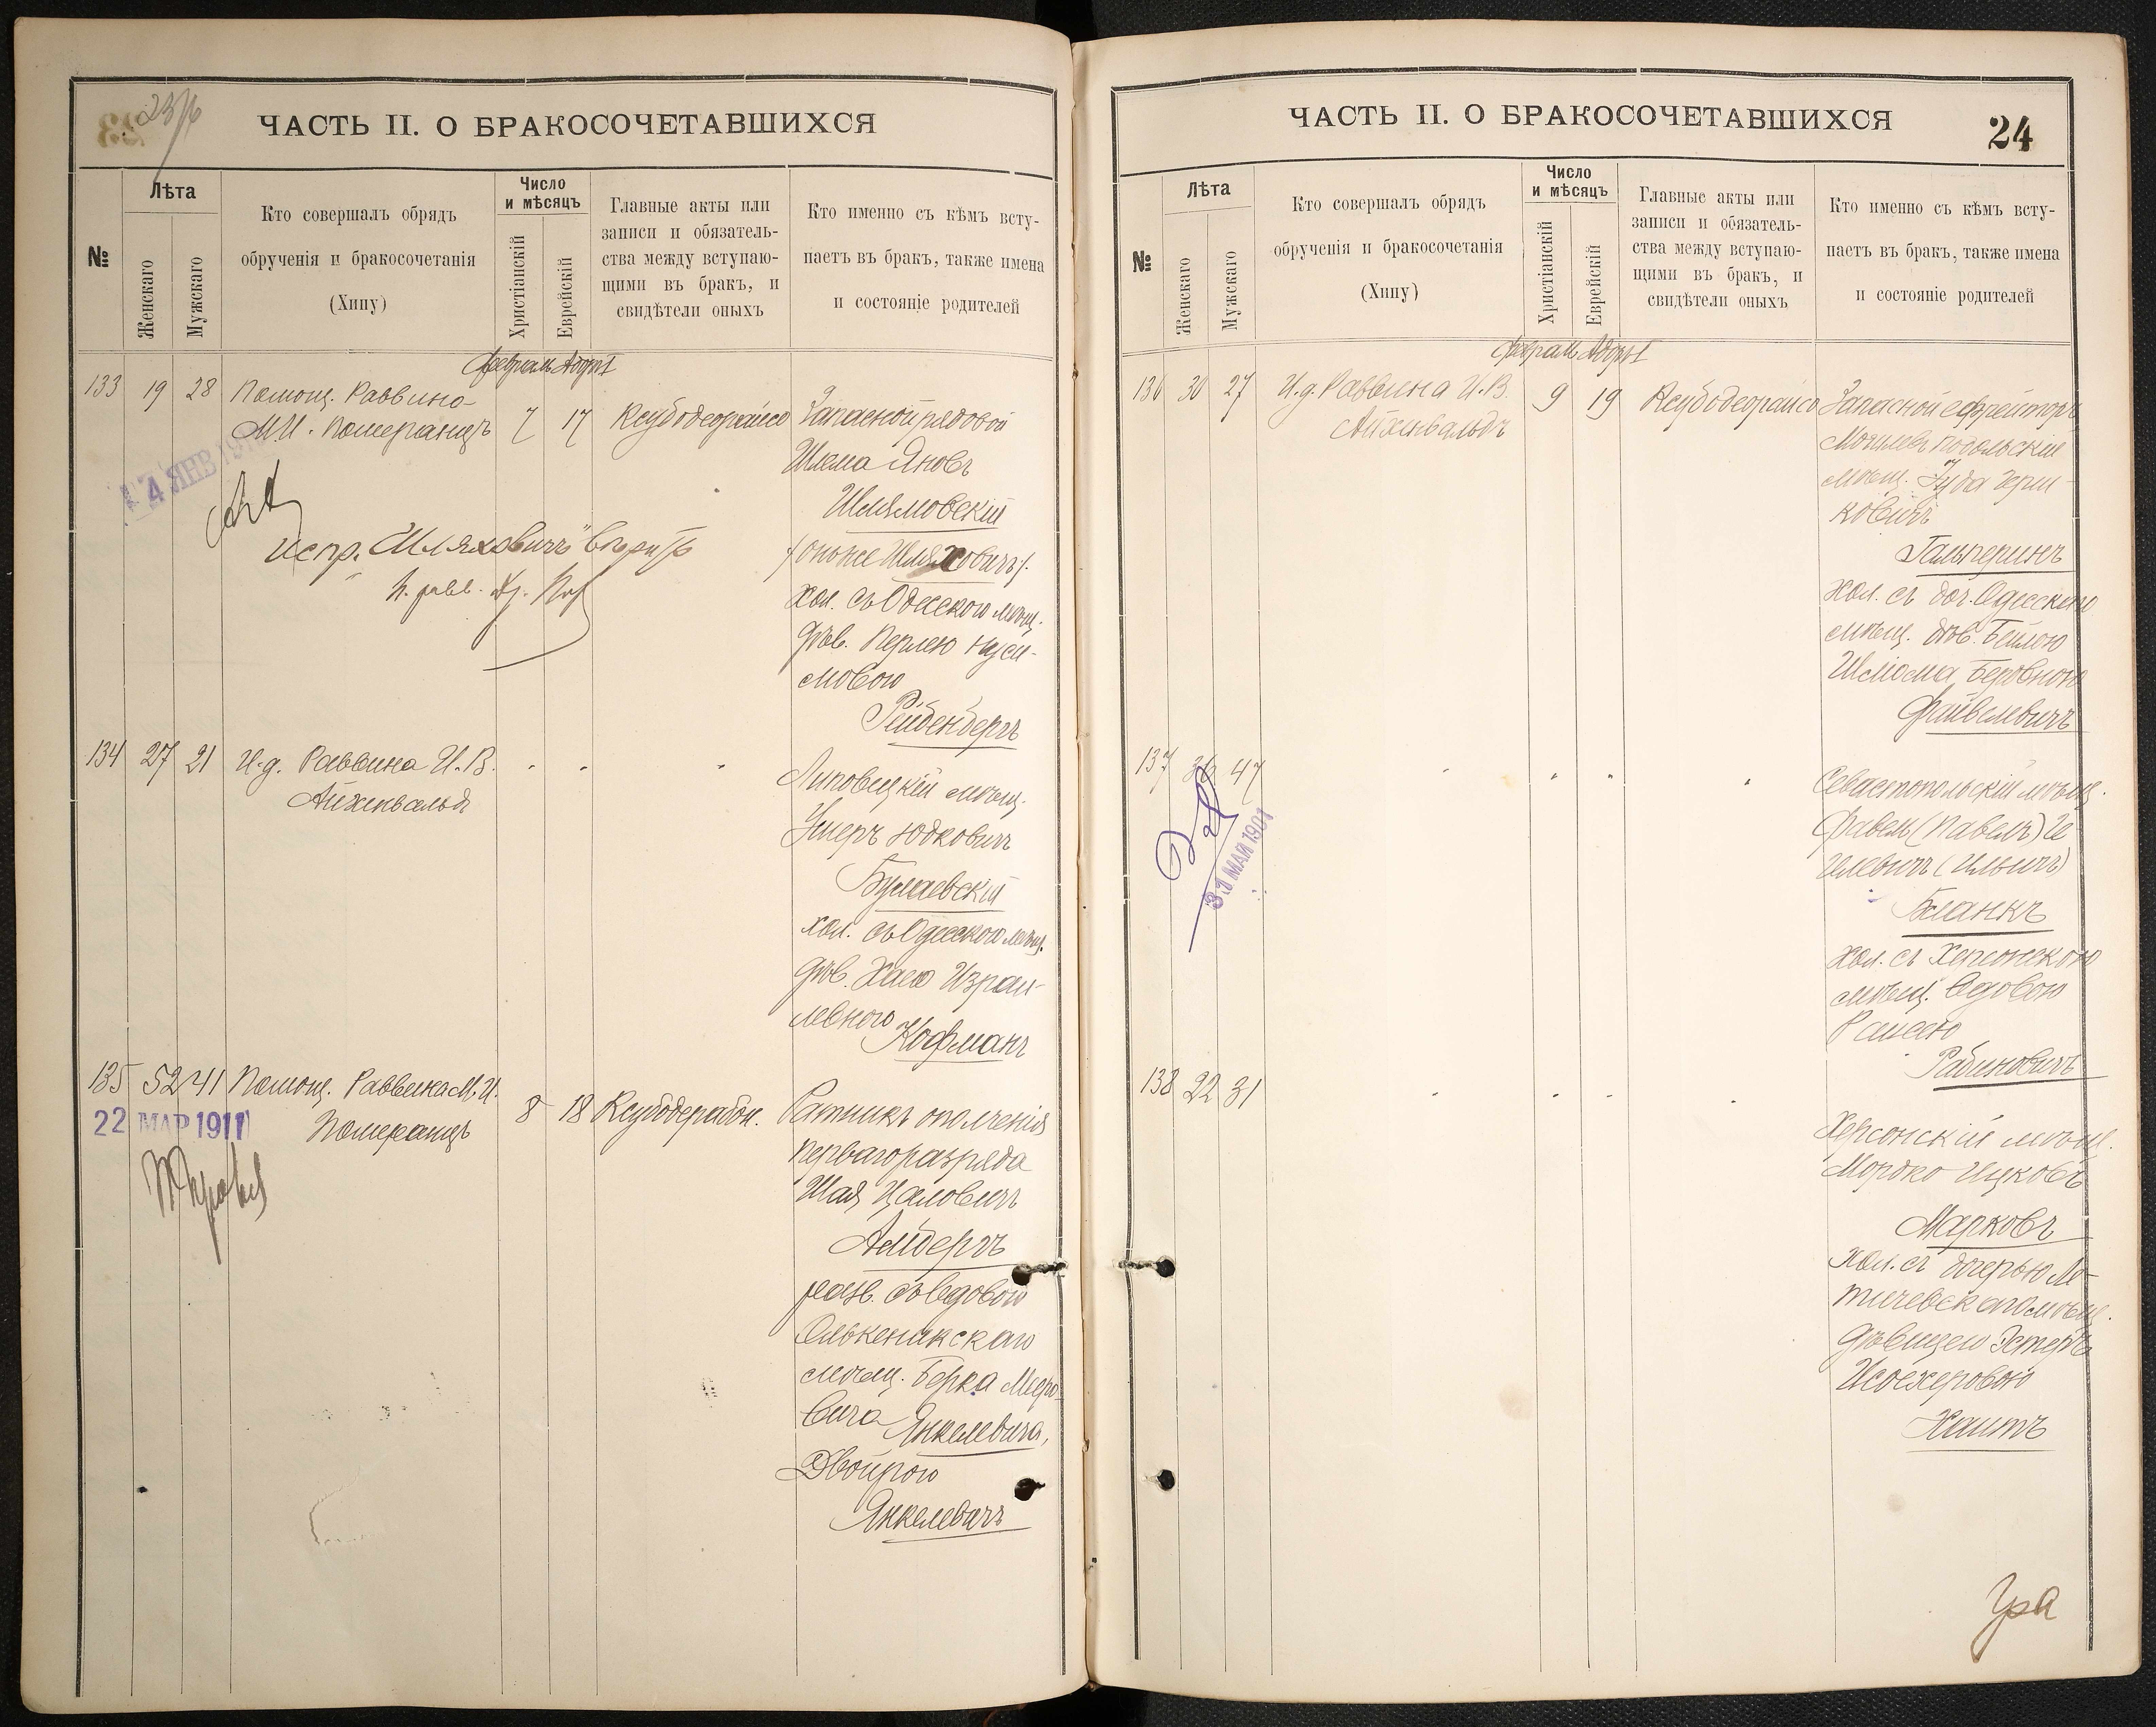 23 об
ЧАСТЬ II. О БРАКОСОЧЕТАВШИХСЯ
№
Лѣта
Женскаго
Мужскаго
Кто совершалъ обрядъ
обрученія и бракосочетанія
(Хипу)
Число
и мѣсяцъ
Христіанскій
Еврейскій
Главные акты или
записи и обязатель-
ства между вступаю-
щими въ бракъ, и
свидѣтели оныхъ
Кто именно съ кѣмъ всту-
паетъ въ бракъ, также имена
и состояніе родителей
Февраль Адаръ I
133 19 28 Помощ. Раввина
М.И. Померанцъ
7 17 Ксубодеорайсо
Запасной рядовой
Шлема Яновъ
Шлямовскій
/онъ же Шляховичъ/
хол. съ Одесскою мѣщ.
дѣв. Перлею Нуси-
мовою
Рейденбергъ
4 ЯНВ
испр. "Шляховичъ" вѣрить
134 27 21 И.д. Раввина И.В.
Айхенвальд
Липовецкій мѣщ.
Умеръ Юдковичъ
Булаевскій
хол. съ Одесскою мѣщ.
дѣв. Хаею Израи-
левною
Кофманъ
135 52 41 Помощ. Раввина М.И.
Померанцъ
8 18 Ксубодерабон.
22 МАР 1911
Ратникъ ополченія
перваго разряда
Шая Цаловичъ
Албергъ
разв. съ вдовою
Олькеникскаго
мѣщ. Берка Мееро-
вича Янкелевича,
Двойрою
Янкелевичъ
ЧАСТЬ II. О БРАКОСОЧЕТАВШИХСЯ
24
№
Лѣта
Женскаго
Мужскаго
Кто совершалъ обрядъ
обрученія и бракосочетанія
(Хипу)
Число
и мѣсяцъ
Христіанскій
Еврейскій
Главные акты или
записи и обязатель-
ства между вступаю-
щими въ бракъ, и
свидѣтели оныхъ
Кто именно съ кѣмъ всту-
паетъ въ бракъ, также имена
и состояніе родителей
Февраль Адаръ I
136 30 27 И.д. Раввина И.В.
Айхенвальдъ
9 19 Ксубодеорайсо
Запасной ефрейторъ
Могилевъ Подольскій
мѣщ. Іуда Герш-
ковичъ
Гальперинъ
хол. съ доч. Одесскаго
мѣщ. дѣв. Бейлою
Шліома Беровною
Файвелевичъ
137 36 47
31 МАЙ 1901
Севастопольскій мѣщ.
Фавель (Павелъ) И
илевичъ (Ильичъ)
Бланкъ
хол. съ Херсонскою
мѣщ. вдовою
Раисею
Рабиновичъ
138 22 31
Херсонскій мѣщ.
Мордко Ицковъ
Марковъ
хол. съ дочерью Ле-
тичевскаго мѣщ.
дѣвицею Эстеръ
Исохеровою
Хаитъ